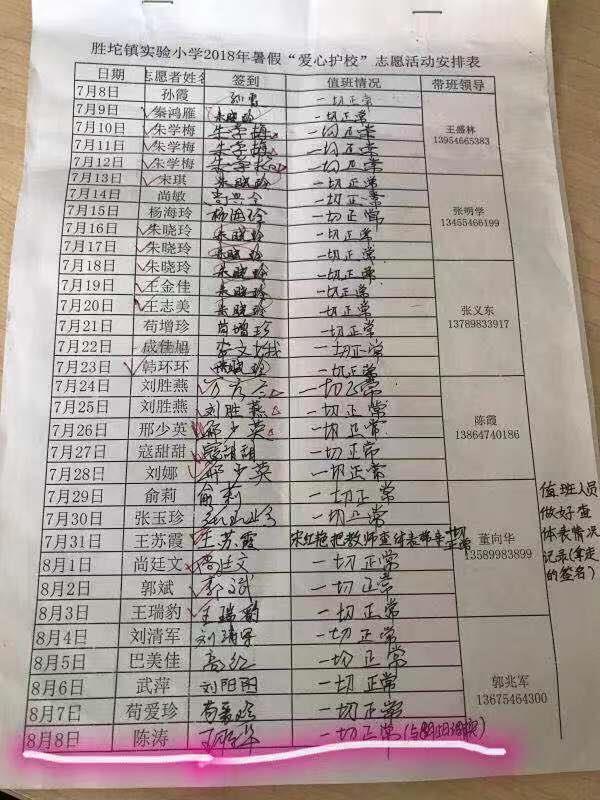 胜坨镇实验小学2018年暑假“爱心护校”志愿活动安排表
日期 志愿者姓名 签到 值班情况 带班领导
7月8日 孙霞 孙霞 一切正常
7月9日 秦鸿雁 朱晓玲 一切正常
7月10日 朱学梅 朱学梅 一切正常 王盛林
7月11日 朱学梅 朱学梅 一切正常 13954665383
7月12日 朱学梅 朱学梅 一切正常
7月13日 朱琪 朱晓玲 一切正常
7月14日 尚敏 一切正常
7月15日 杨海玲 杨海玲 一切正常 张明学
7月16日 朱晓玲 朱晓玲 一切正常 13455466199
7月17日 朱晓玲 朱晓玲 一切正常
7月18日 朱晓玲 朱晓玲 一切正常
7月19日 王金佳 朱晓玲 一切正常
7月20日 王志美 朱晓玲 一切正常 张义东
7月21日 苟增珍 苟增珍 一切正常 13789833917
7月22日 成佳旭 一切正常
7月23日 韩环环 一切正常
7月24日 刘胜燕 一切正常
7月25日 刘胜燕 刘胜燕 一切正常 陈霞
7月26日 邢少英 邢少英 一切正常 13864740186
7月27日 寇甜甜 寇甜甜 一切正常
7月28日 刘娜 邢少英 一切正常
7月29日 俞莉 俞莉 一切正常
7月30日 张玉珍 一切正常
7月31日 王苏霞 王苏霞 一切正常 董向华
8月1日 尚廷文 尚廷文 一切正常 13589983899
8月2日 郭斌 郭斌 一切正常
8月3日 王瑞豹 王瑞豹 一切正常
8月4日 刘清军 刘清军 一切正常
8月5日 巴美佳 一切正常
8月6日 武萍 刘阳阳 一切正常 郭兆军
8月7日 荀爱珍 一切正常 13675464300
8月8日 陈涛 一切正常
值班人员
做好查
体表情况
记录(拿走
的签名)